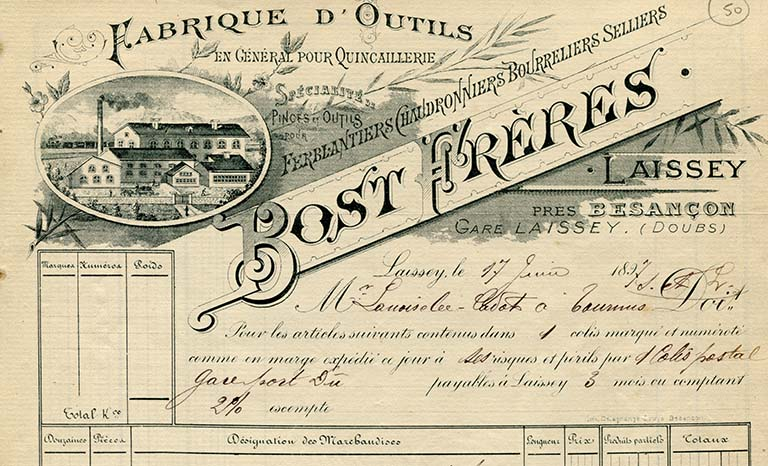 50
Fabrique d'Outils
en Général pour Quincaillerie
Spécialité de
Pinces et Outils
pour
Ferblantiers Chaudronniers Bourreliers Selliers
Bost Frères
Laissey
près Besançon
Gare Laissey. (Doubs)
Laissey, le 17 Juin 1897
Mr à Tournus Doit
Pour les articles suivants contenus dans 1 colis marqué et numéroté
comme en marge expédié ce jour à ses risques et périls par 1 Colis postal
Gare port Dû payables à Laissey 3 mois ou comptant
2% escompte
Marques Numéros Poids
Total Kos
Douzaines Pièces Désignation des Marchandises Longueur Prix Produits partiels Totaux